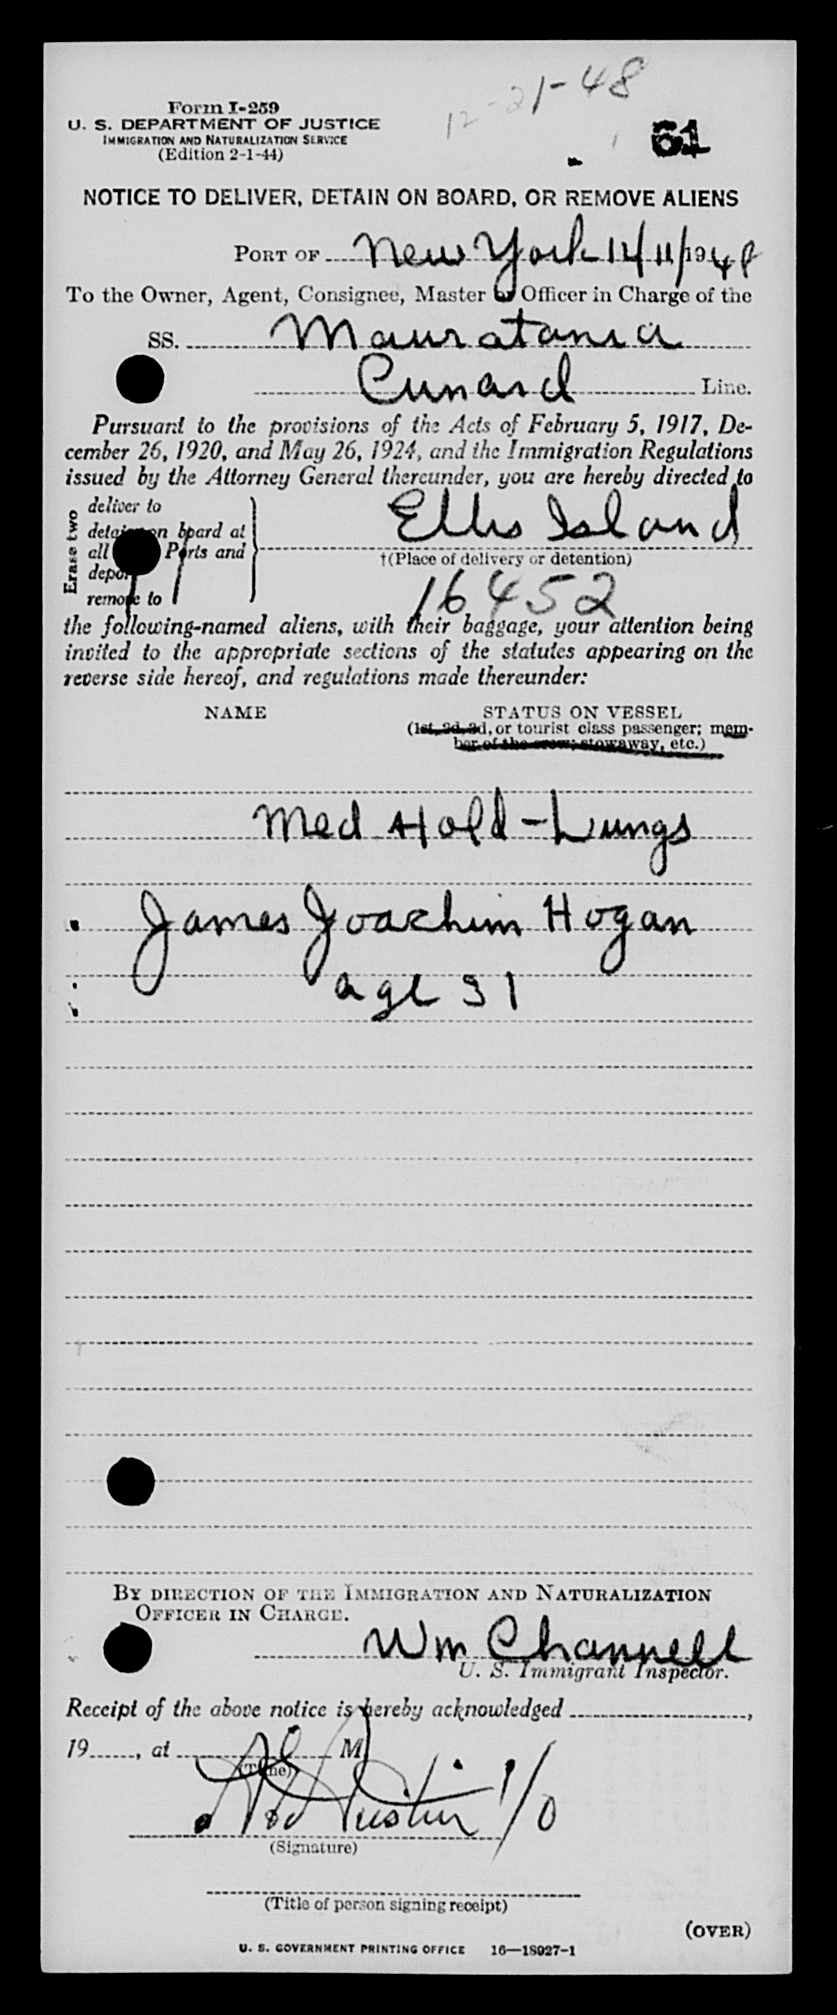 12-21-48
Form I-259
U. S. DEPARTMENT OF JUSTICE
IMMIGRATION AND NATURALIZATION SERVICE
(Edition 2-1-44)
61
NOTICE TO DELIVER, DETAIN ON BOARD, OR REMOVE ALIENS
PORT OF New York 12/11/1948
To the Owner, Agent, Consignee, Master or Officer in Charge of the
SS. Mauratania
Cunard Line.
Pursuant to the provisions of the Acts of February 5, 1917, De-
cember 26, 1920, and May 26, 1924, and the Immigration Regulations
issued by the Attorney General thereunder, you are hereby directed to
Erase two
deliver to
detain on board at
all Ports and
depor
remove to
Ellis Island
†(Place of delivery or detention)
16452
the following-named aliens, with their baggage, your attention being
invited to the appropriate sections of the statutes appearing on the
reverse side hereof, and regulations made thereunder:
NAME STATUS ON VESSEL
(1st, 2d, 3d, or tourist class passenger; mem-
ber of the crew; stowaway, etc.)
Med Hold - Lungs
James Joachim Hogan
age 31
BY DIRECTION OF THE IMMIGRATION AND NATURALIZATION
OFFICER IN CHARGE.
Wm Channell
U. S. Immigrant Inspector.
Receipt of the above notice is hereby acknowledged ,
19 , at M
(Time)
(Signature)
(Title of person signing receipt)
(OVER)
U. S. GOVERNMENT PRINTING OFFICE 16—18927-1